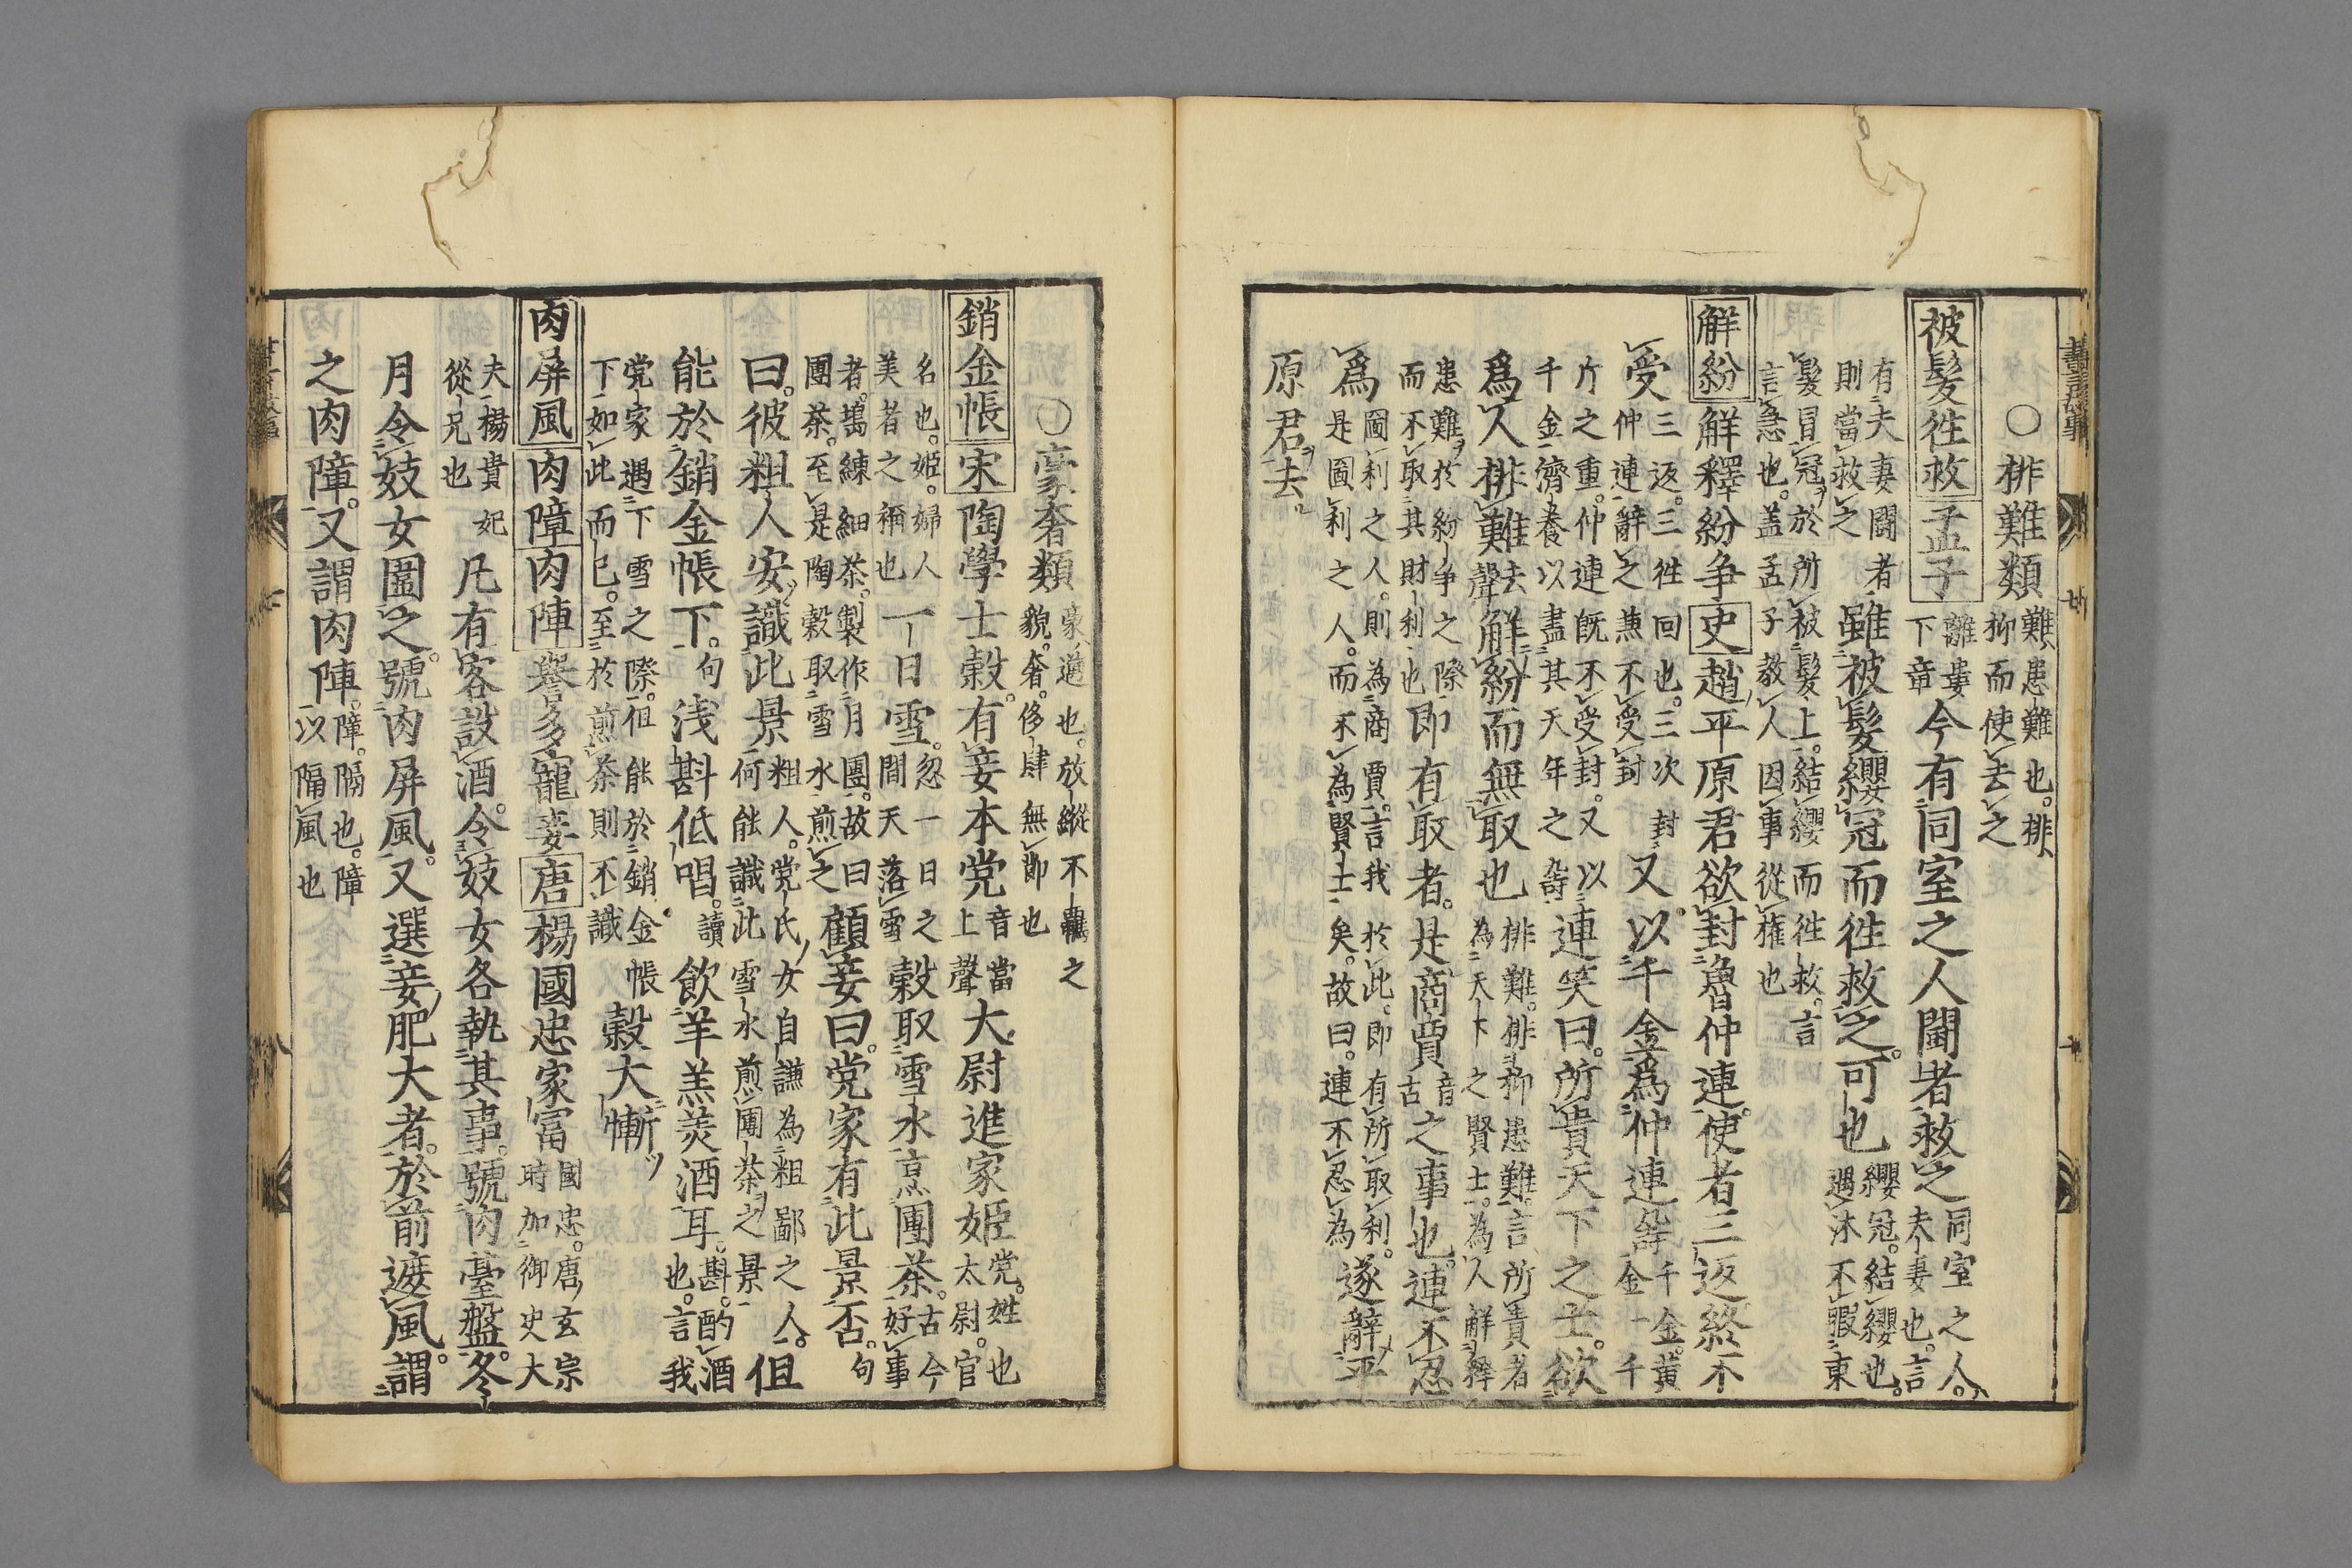 ○排難類 難患難也。排
抑而使去之
被髮徃救 孟子 離婁
下章 今有同室之人鬪者救之 同室之人。
夫妻也。言
有夫妻鬪者
則當救之 雖被髮纓冠而徃救之。可也 纓冠。結纓也。
遇沐不暇東
髮冒冠於所被髮上。結纓而徃救。言
言急也。盖孟子教人因事從権也
解紛 解釋紛争 史 趙平原君欲封魯仲連。使者三返終不
受 三返。三徃回也。三次封
仲連辭之兼不受封 又以千金為仲連壽 千金。黄
金一千
斤之重。仲連既不受封。又以
千金濟養以盡其天年之壽 連笑曰。所貴天下之士。欲
為人排難 去
聲 解紛而無取也 排難。排抑患難。言所貴者
為天下之賢士。為人解釋
患難於紛争之際
而不取其財利也 即有取者。是商賈 音
古 之事也。連不忍
為 圖利之人。則為商賈。言我於此。即有所取利。
是圖利之人。而不為賢士矣。故曰。連不忍為 遂辭平
原君去。
○豪奢類 豪。邁也。放縱不羈之
貌。奢。侈肆無節也
銷金帳 宋 陶學士穀。有妾本党 音當
上聲 大尉進家姬 党。姓也
太尉。官
名也。姬。婦人
美者之稱也 一日雪。忽一日之
間天落雪 穀取雪水烹團茶。 古今
好事
者。搗練細茶。製作月團。故曰
團茶。至是陶穀取雪水煎之 顧妾曰。党家有此景否。 句
曰。彼粗人安識此景 粗人。党氏女自謙為粗鄙之人。
何能識此雪水煎團茶之景 但
能於銷金帳下。 句 浅斟低唱。 讀 飲羊羔美酒耳。 斟。酌酒
也。言我
党家遇下雪之際。但能於銷金帳
下如此而已。至於煎茶則不識 穀大慚
肉屏風 肉障 肉陣 譽多寵妾 唐 楊國忠家冨 國忠。唐玄宗
時加御史大
夫楊貴妃
從兄也 凡有客設酒。令妓女各執其事。號肉臺盤。冬
月令妓女圍之。號肉屏風。又選妾肥大者。於前遮風。謂
之肉障。又謂肉陣。 障。隔也。障
以隔風也